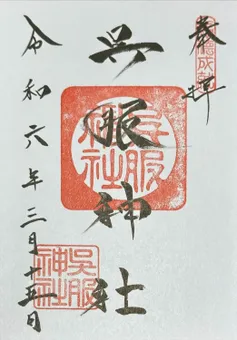 奉拝
呉服神社
呉服
神社
令和六年三月十五日
吳服
神社